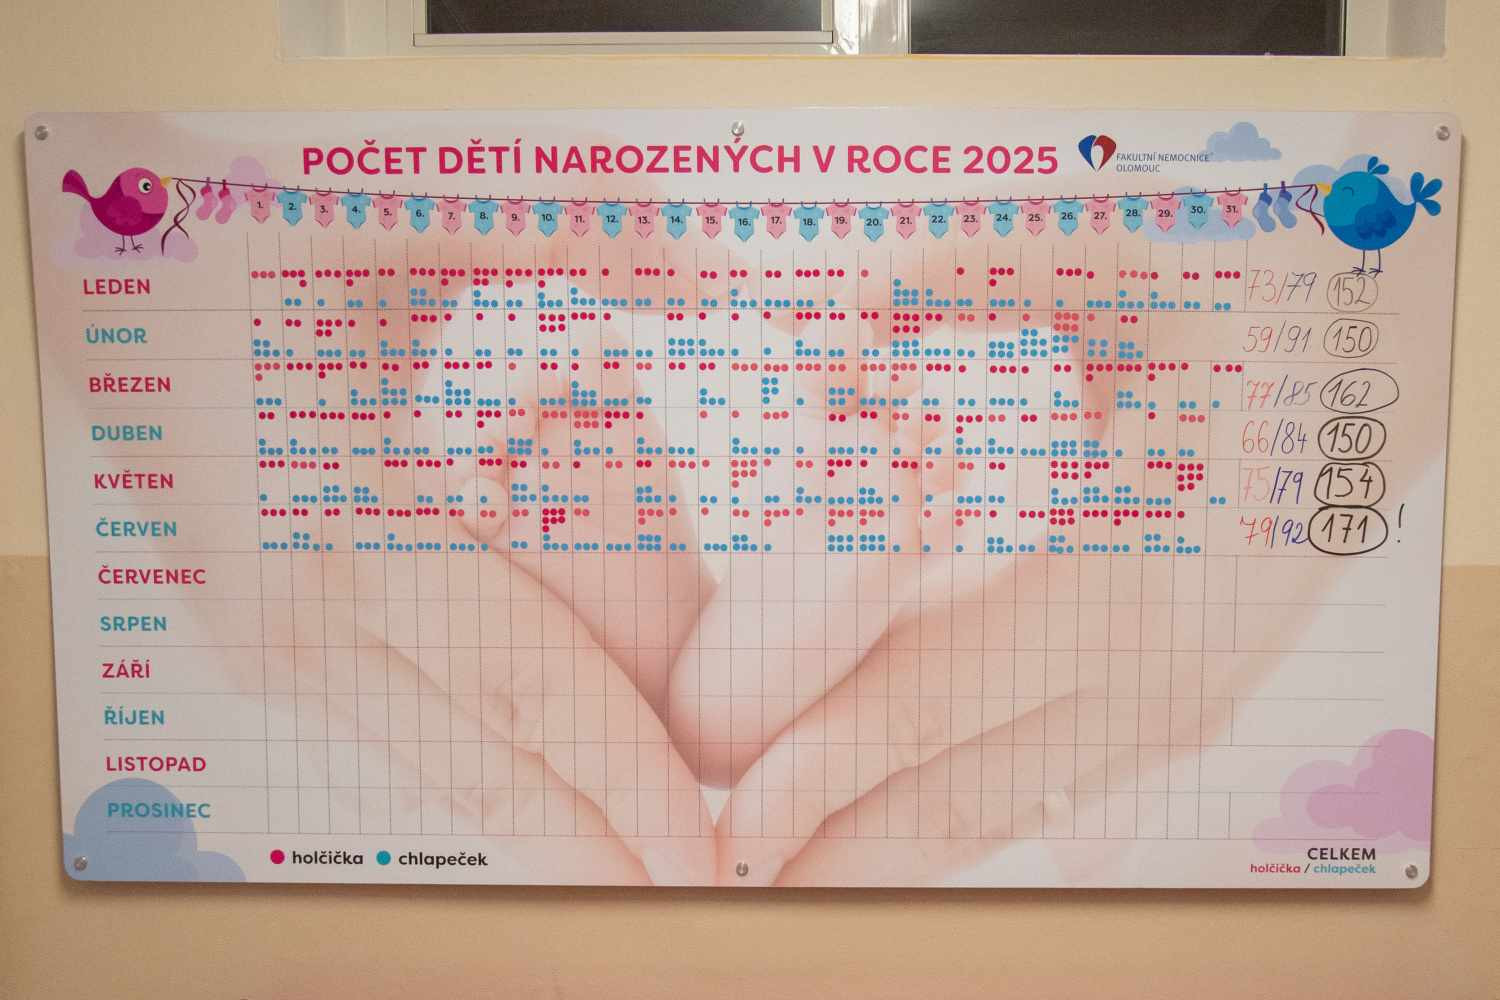 POČET DĚTÍ NAROZENÝCH V ROCE 2025
FAKULTNÍ NEMOCNICE
OLOMOUC
1. 2. 3. 4. 5. 6. 7. 8. 9. 10. 11. 12. 13. 14. 15. 16. 17. 18. 19. 20. 21. 22. 23. 24. 25. 26. 27. 28. 29. 30. 31.
LEDEN 73/79 152
ÚNOR 59/91 150
BŘEZEN 77/85 162
DUBEN 66/84 150
KVĚTEN 75/79 154
ČERVEN 79/92 171!
ČERVENEC
SRPEN
ZÁŘÍ
ŘÍJEN
LISTOPAD
PROSINEC
holčička chlapeček
CELKEM
holčička / chlapeček